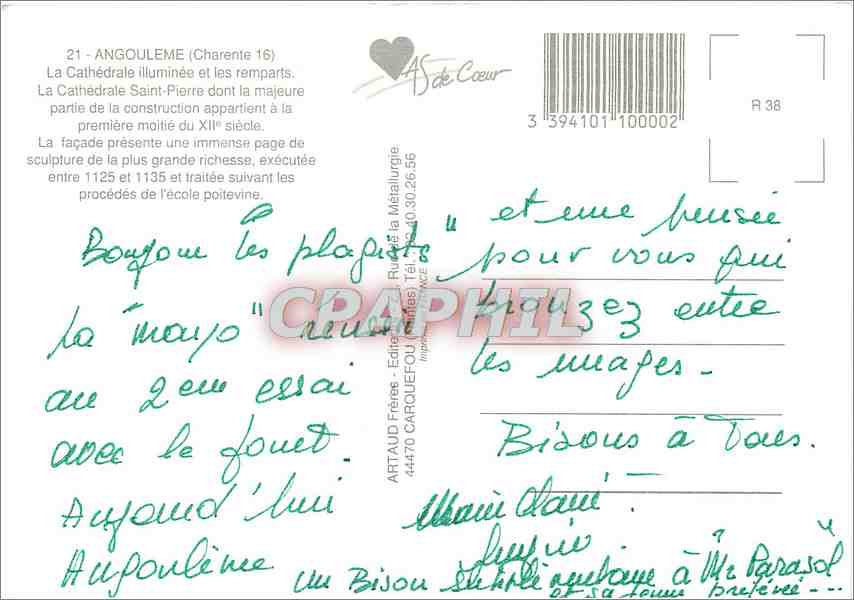 21 - ANGOULEME (Charente 16)
La Cathédrale illuminée et les remparts.
La Cathédrale Saint-Pierre dont la majeure
partie de la construction appartient à la
première moitié du XIIe siècle.
La façade présente une immense page de
sculpture de la plus grande richesse, exécutée
entre 1125 et 1135 et traitée suivant les
procédés de l'école poitevine.
AS de Cœur
3 394101 100002
R 38
ARTAUD Frères - Rue de la Métallurgie
44470 CARQUEFOU (Nantes) Tél. 40.30.26.56
CPAPHIL
Bonjour les plagistes"
La "mayo" réussi
au 2em essai
avec le fouet.
Aujourd'hui
Angoulême
et une pensée
pour vous qui
bronzez entre
les nuages -
Bisous à Tous.
un Bisou supplémentaire à "Mr Parasol"
et sa femme préférée ---